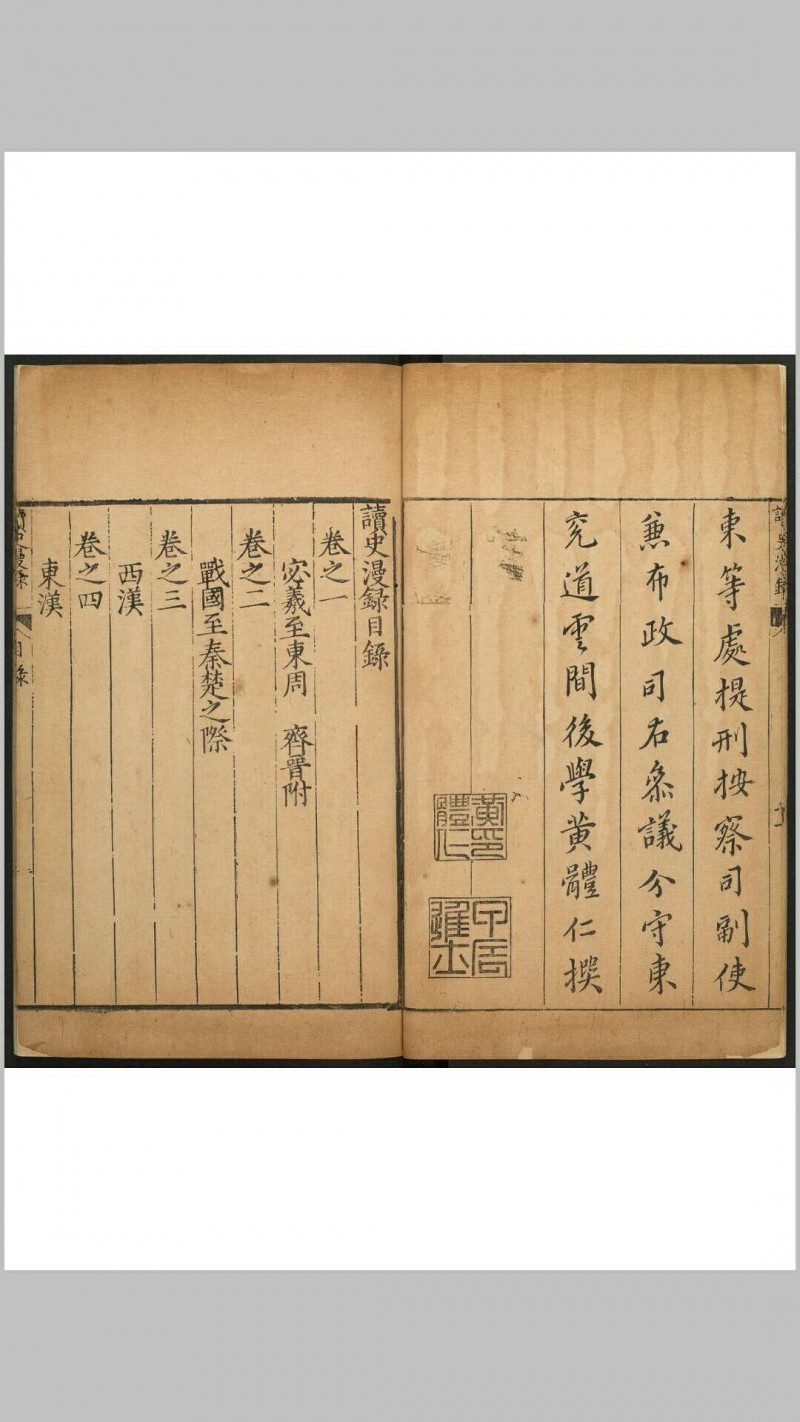 東等處提刑按察司副使
兼布政司右叅議分守東
兖道雲間後學黄體仁撰
黃體仁印
甲辰進士
讀史漫録目録
卷之一
宓羲至東周 齊晋附
卷之二
戰國至秦楚之際
卷之三
西漢
卷之四
東漢
目録